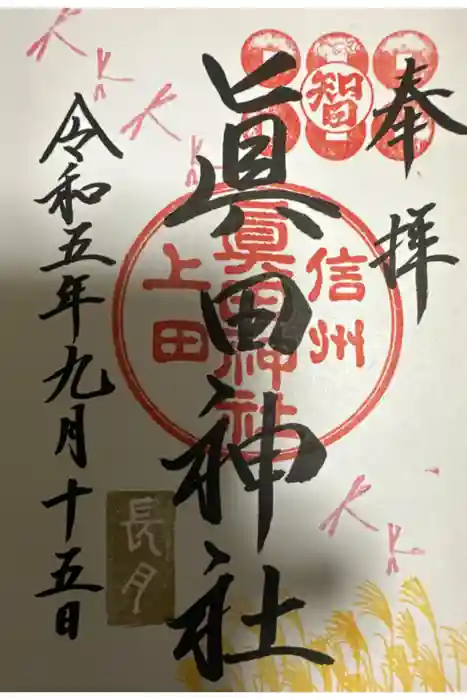 奉拝
智
眞田神社
信州
眞田神社
上田
令和五年九月十五日
長月